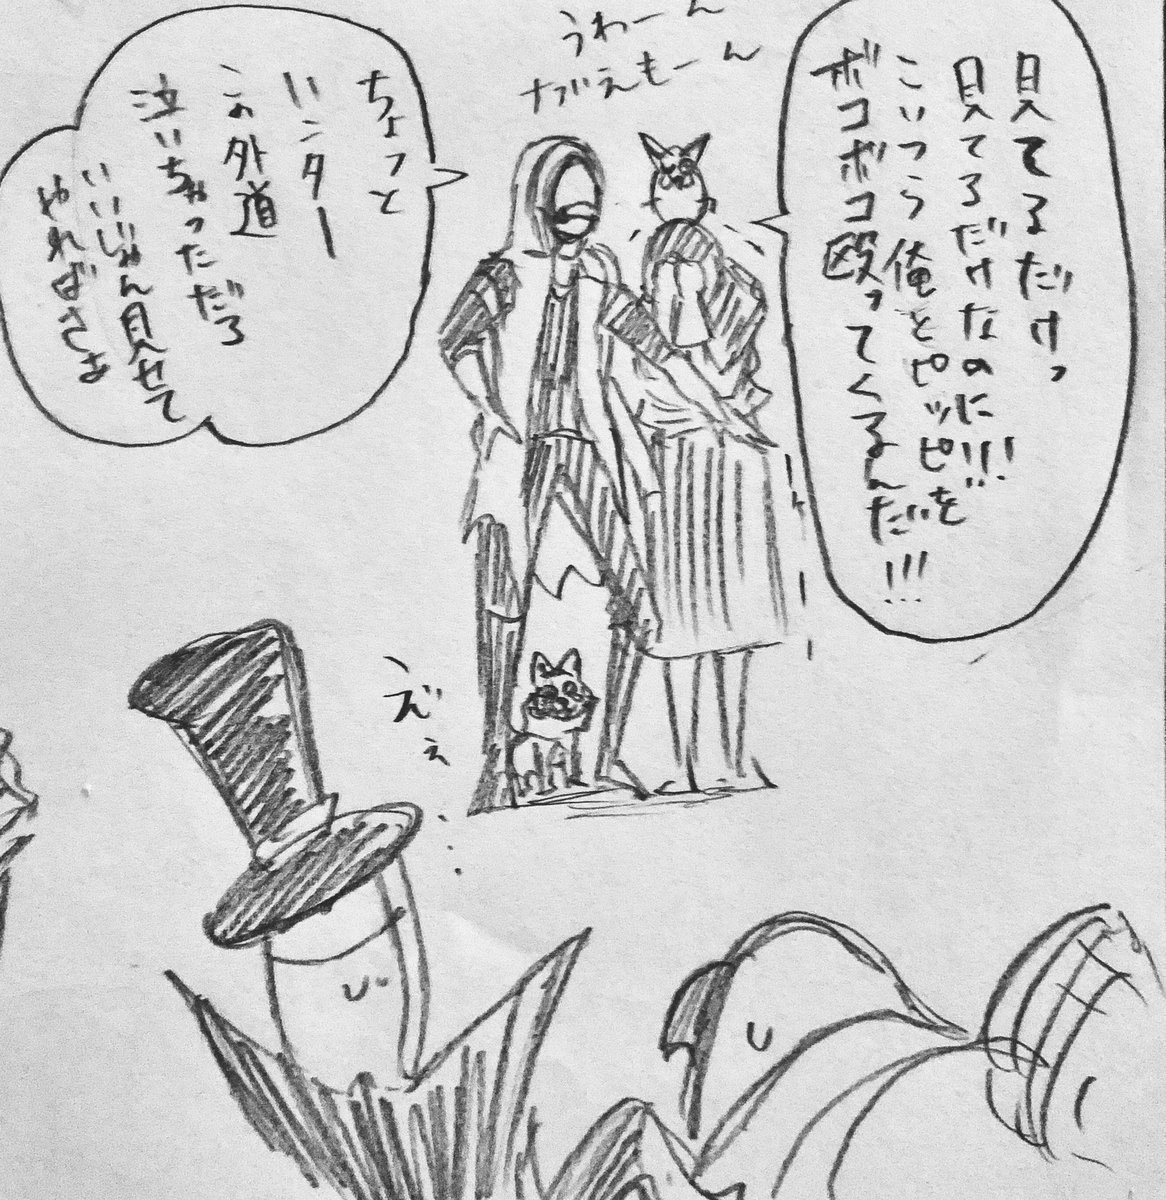 うわーん
ガえもーん
見てるだけっ
見てるだけなのに!!!
こいつら俺をピッピを
ボコボコ殴ってくるんだ!!!
ちょっと
ハンター
この外道
泣いちゃっただろ
いいじゃん見せて
やればさぁ
えぇ…